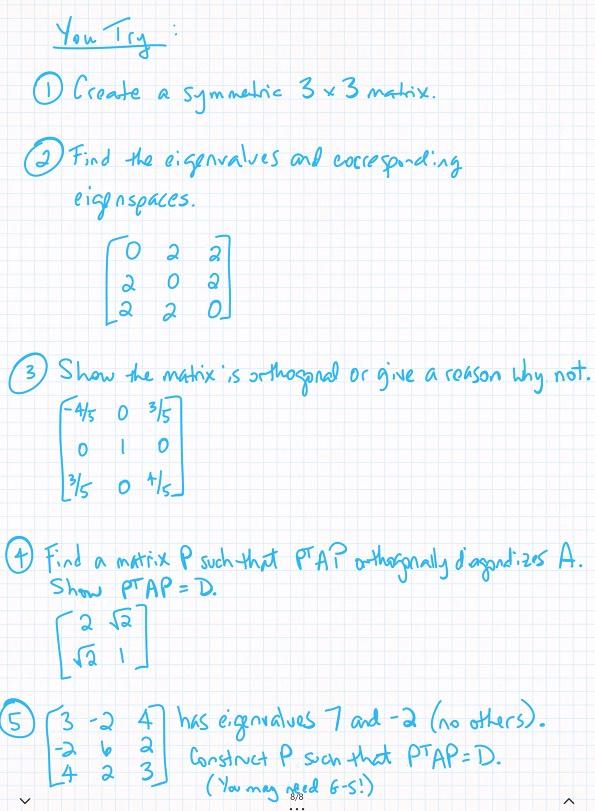 You Try:
① Create a symmetric 3 x 3 matrix.
② Find the eigenvalues and corresponding
eigenspaces.
0 2 2
2 0 2
2 2 0
③ Show the matrix is orthogonal or give a reason why not.
-4/5 0 3/5
0 1 0
3/5 0 4/5
④ Find a matrix P such that PᵀAP orthogonally diagonalizes A.
Show PᵀAP = D.
2 √2
√2 1
⑤ 3 -2 4 has eigenvalues 7 and -2 (no others).
-2 6 2 Construct P such that PᵀAP = D.
4 2 3 (You may need G-S!)
8/8